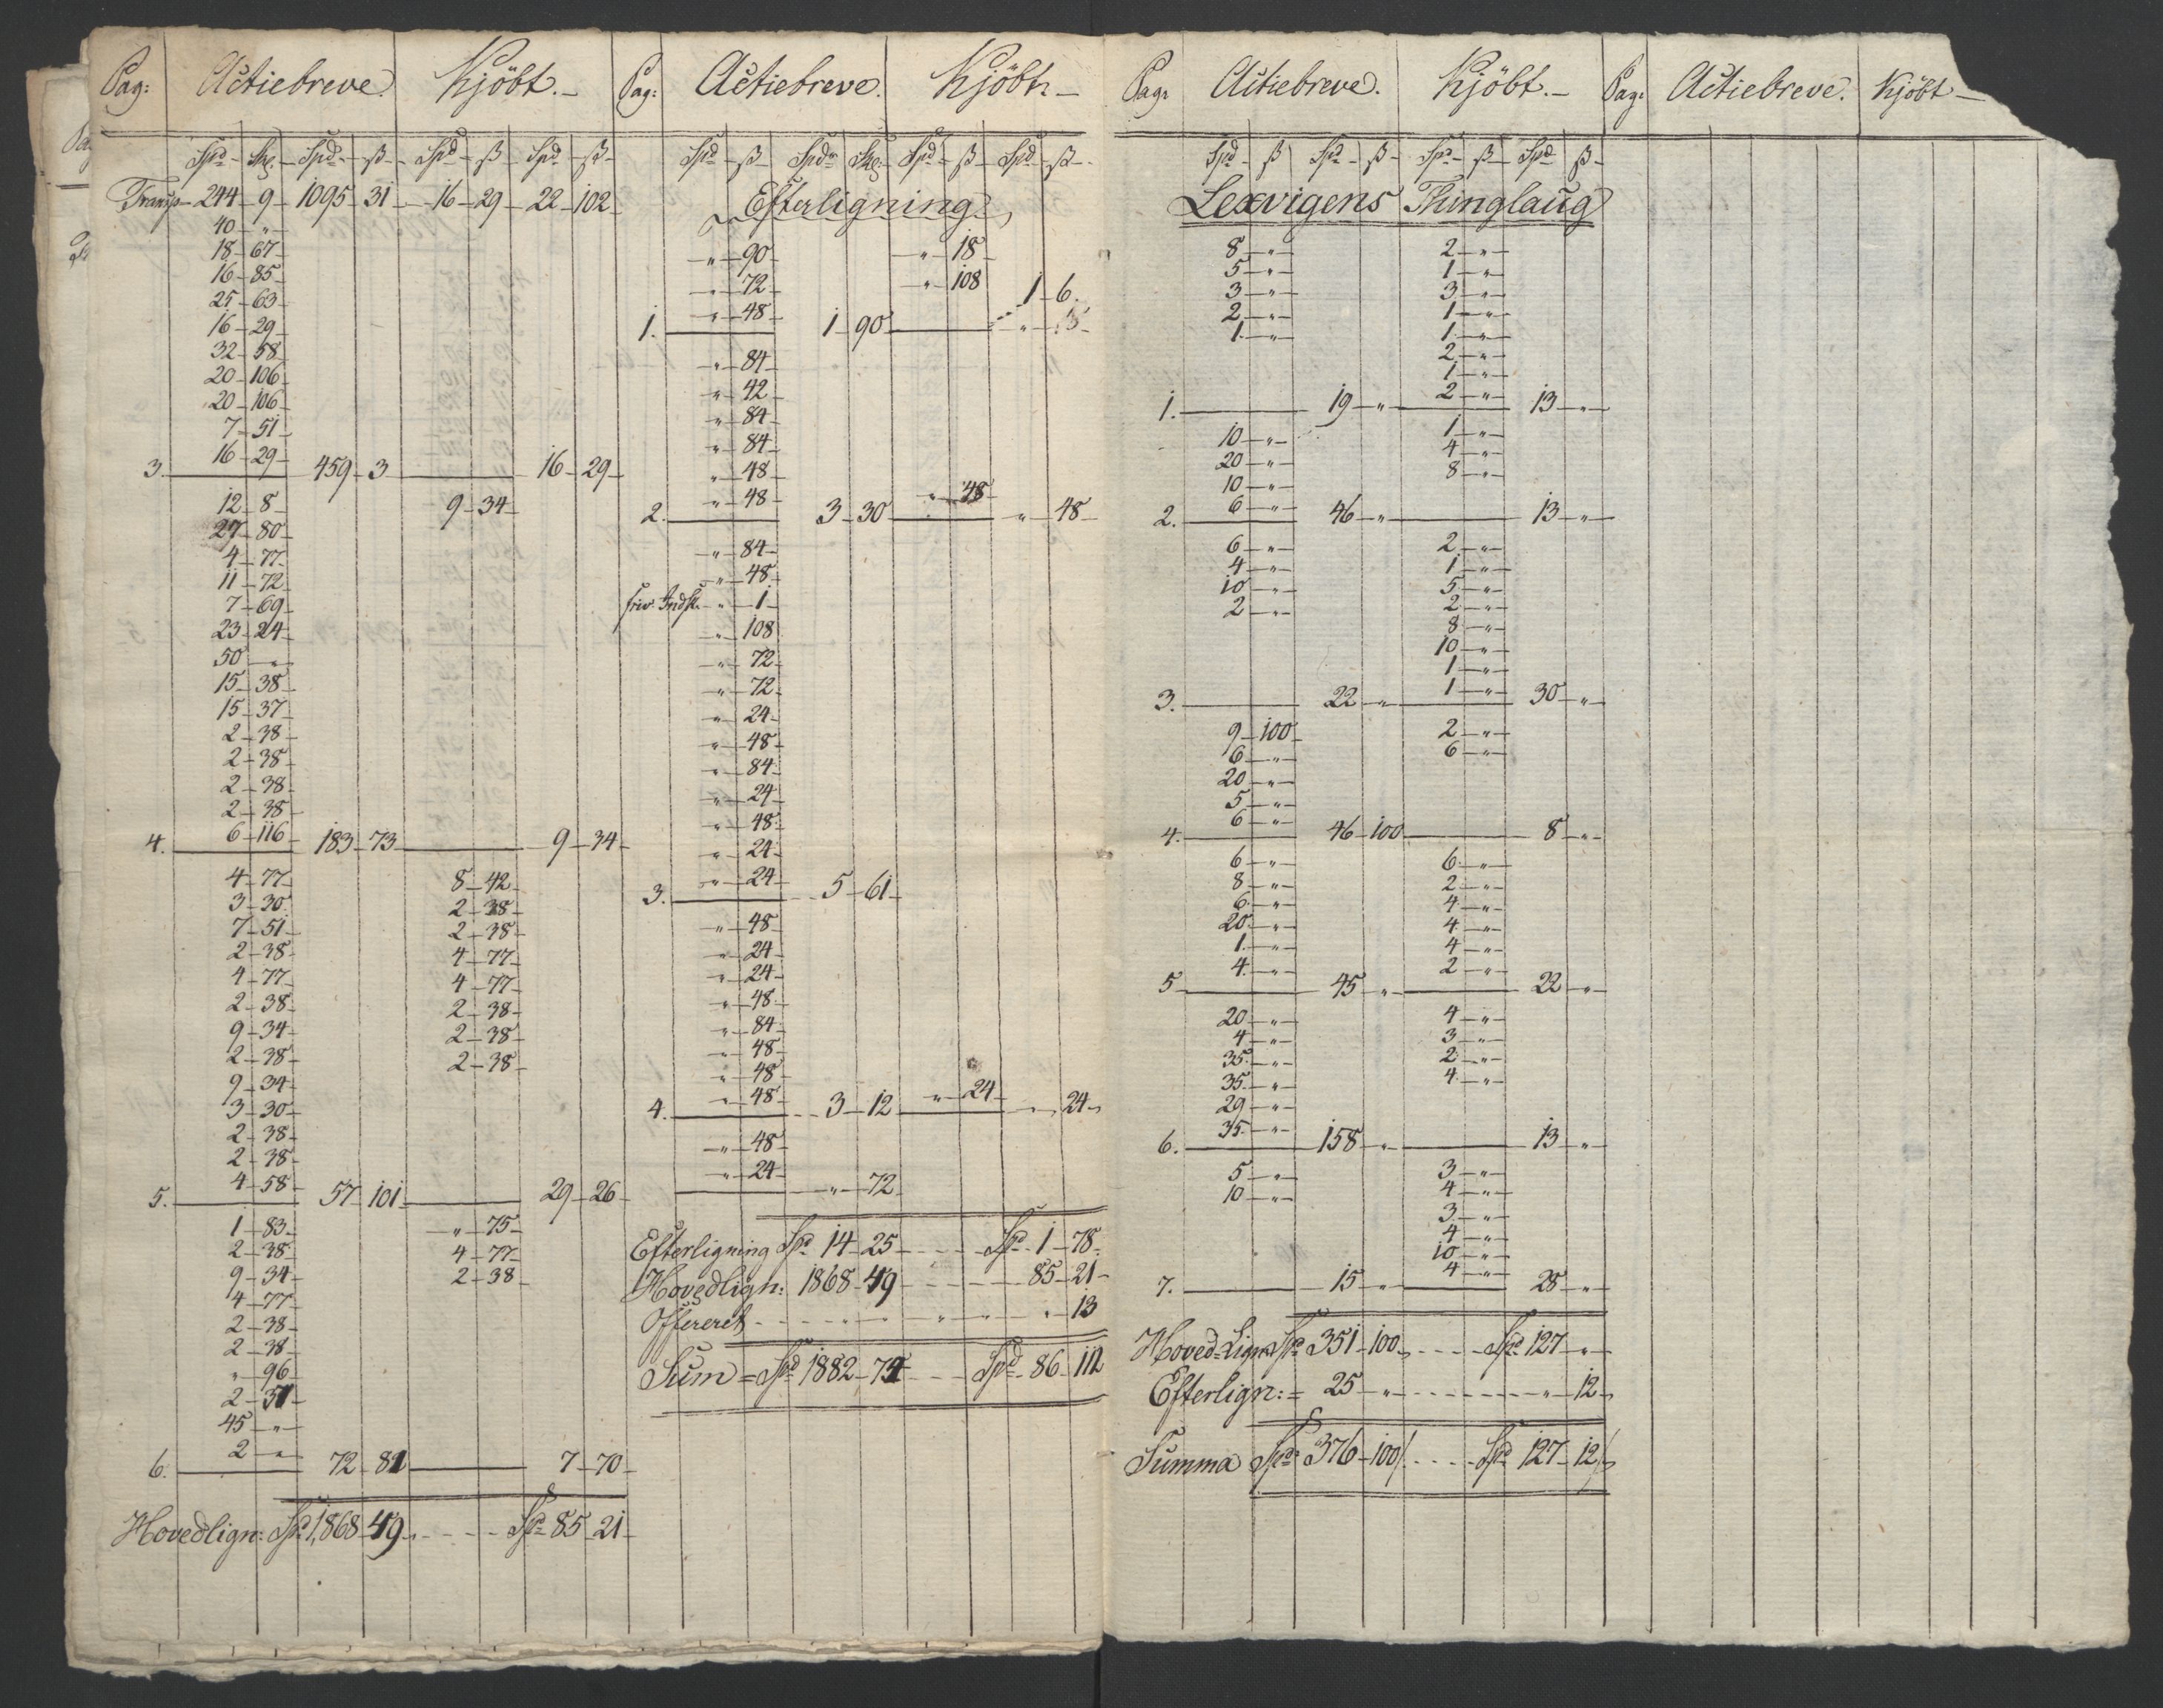 Pag: Actiebreve. Kjöbt.
Spd Sk. Spd ß Spd ß Spd ß
Transp 244 9 1095 31 16 29 22 102
40 "
18 67
16 85
25 63
16 29
32 58
20 106
20 106
7 51
16 29
3. 459 3 16 29
12 8 9 34
27 80
4 77
11 72
7 69
23 24
50 "
15 38
15 37
2 38
2 38
2 38
2 38
6 116
4. 183 73 9 34
4 77 8 42
3 30 2 38
7 51 2 38
2 38 4 77
4 77 4 77
2 38 2 38
9 34 2 38
2 38 2 38
9 34
3 30
2 38
2 38
4 58
5. 57 101 29 26
1 83 " 75
2 38 4 77
9 34 2 38
4 77
2 38
2 38
" 96
2 37
45 "
2 "
6. 72 81 7 70
Hovedlign: Spd 1868 49 Spd 85 21
Pag: Actiebreve. Kjöbt.
Spd ß Spd Sk. Spd ß Spd ß
Efterligning
" 90 " 18
" 72 " 108 1 6
" 48
1. 1 90
" 84
" 42
" 84
" 84
" 48
" 48 " 48
2. 3 30 " 48
" 84
" 48
friv. Indsk. " 1
" 108
" 72
" 72
" 24
" 48
" 84
" 24
" 48
" 24
" 24
3. 5 61
" 48
" 24
" 24
" 48
" 84
" 48
" 48
" 48 " 24
4. 3 12 " 24
" 48
" 24
" 72
Efterligning Spd 14 25 Spd 1 78
Hovedlign: 1868 49 85 21
Offereret " " " " " 13
Sum = Spd 1882 74 Spd 86 112
Pag: Actiebreve. Kjöbt.
Spd ß Spd ß Spd ß Spd ß
Lexvigens Thinglaug
8 " 2 "
5 " 1 "
3 " 3 "
2 " 1 "
1 " 1 "
2 "
1 "
2 "
1. 19 " 13 "
10 " 1 "
20 " 4 "
10 " 8 "
6 "
2. 46 " 13 "
6 " 2 "
4 " 1 "
10 " 5 "
2 " 2 "
8 "
10 "
1 "
1 "
3. 22 " 30 "
9 100 2 "
6 " 6 "
20 "
5 "
6 "
4. 46 100 8 "
6 " 6 "
8 " 2 "
6 " 4 "
20 " 4 "
1 " 4 "
4 " 2 "
5 45 " 22 "
20 " 4 "
4 " 3 "
35 " 2 "
35 " 4 "
29 "
35 "
6. 158 " 13 "
5 " 3 "
10 " 4 "
3 "
4 "
10 "
4 "
7. 15 " 28 "
Hoved=Lign Spd 351 100 Spd 127 "
Efterlign: = 25 " " 12
Summa Spd 376 100 Spd 127 12
Pag: Actiebreve. Kjöbt